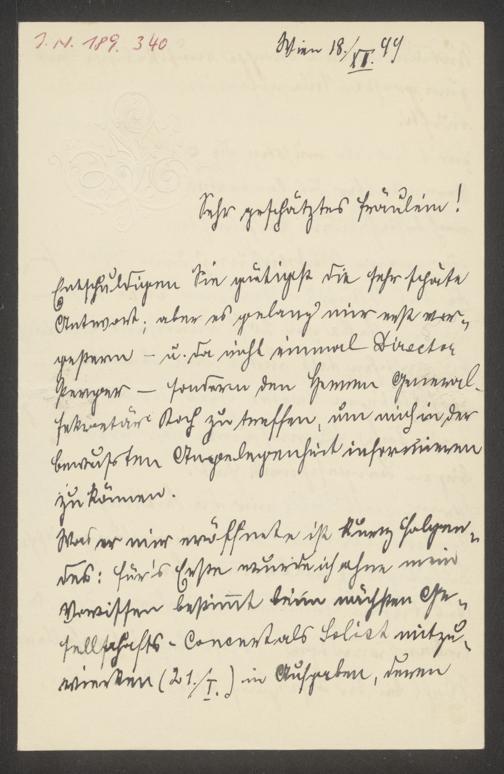 J. N. 189. 340
Wien 18./XII. 99
Sehr geschätztes Fräulein!
Entschuldigen Sie gütigst die sehr späte
Antwort; aber es gelang mir erst vor-
gestern – u. da nicht einmal Director
Perger – sondern den Herrn General-
sekretär Koch zu treffen, um mich in der
bewußten Angelegenheit informieren
zu können.
Was er mir eröffnete ist kurz Folgen-
des: für's Erste wurde ich ohne mein
Vorwissen bestimmt beim nächsten Ge-
sellschafts-Concert als Solist mitzu-
wirken (21./I.) in Aufgaben, deren